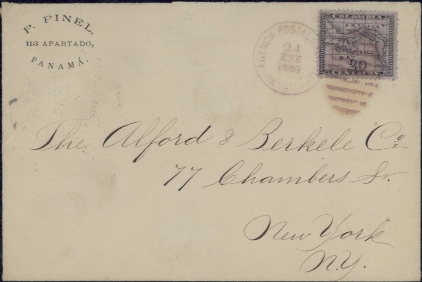 P. PINEL,
113 APARTADO,
PANAMÁ.
AGENCIA POSTAL
24
ENE
1889
COLOMBIA
50
CENTAVOS
The Alford & Berkele Co.
77 Chambers St.
New York
N.Y.